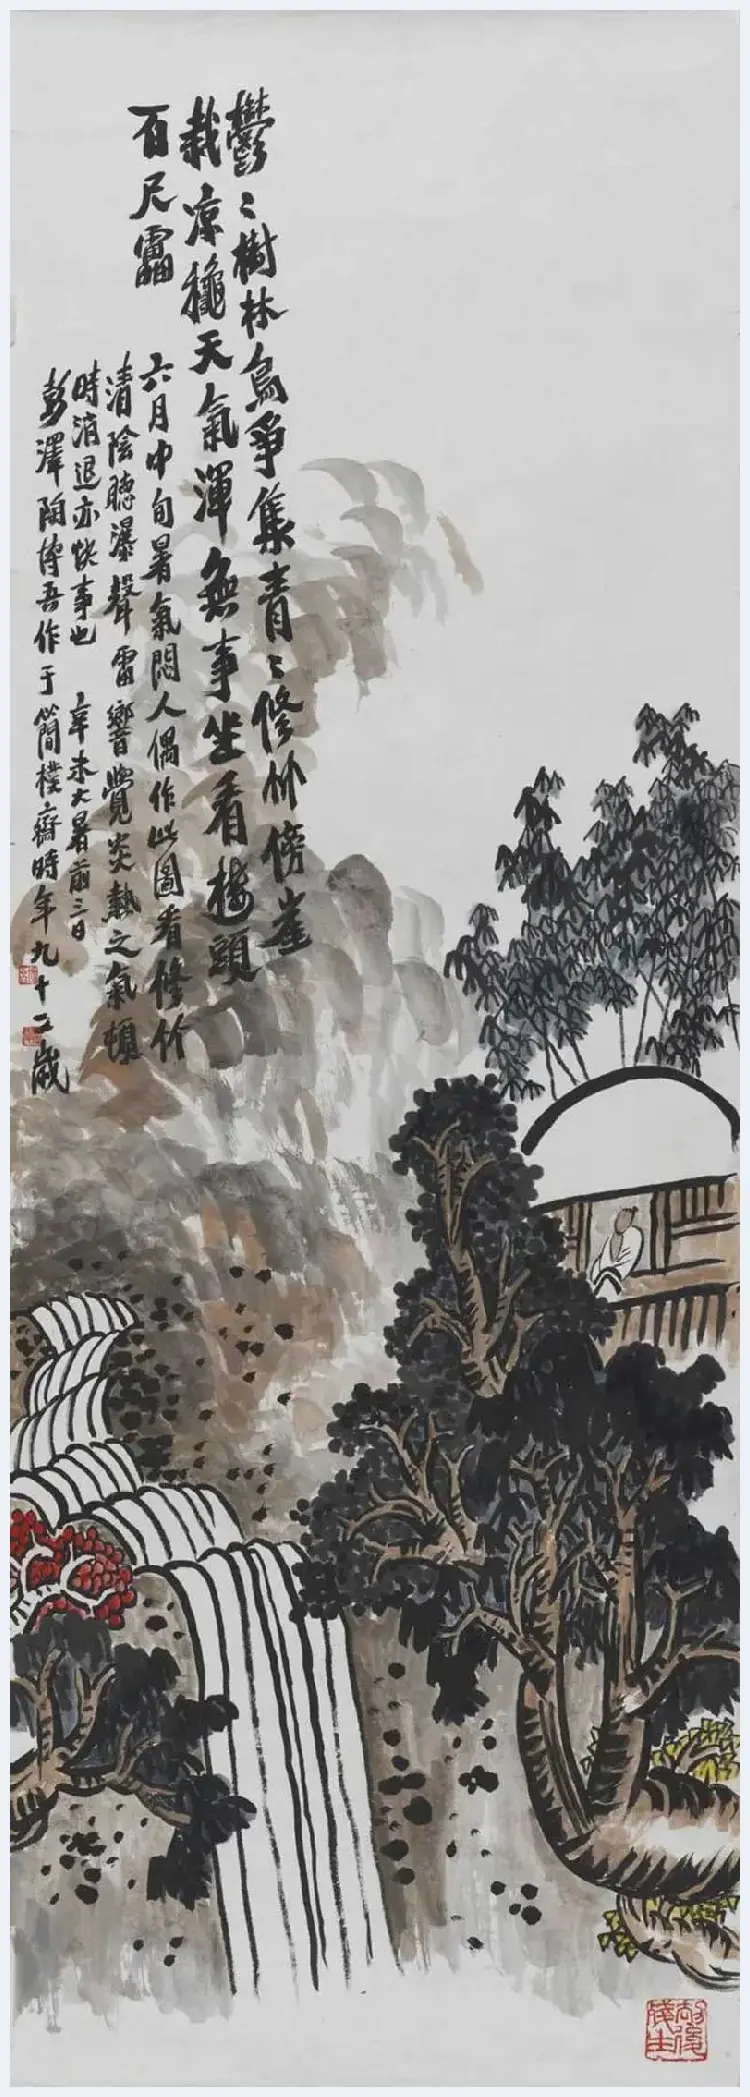 鬱〻樹林鳥爭集青〻修竹傍崖
栽涼龝天氣渾無事坐看樓頭
百尺靁
六月中旬暑氣悶人偶作此圖看修竹
清陰聽瀑聲雷響覺炎熱之氣頓
時消退亦快事也 辛未大暑前三日
彭澤陶博吾作于簡樸齋時年九十二歲
劫後殘生